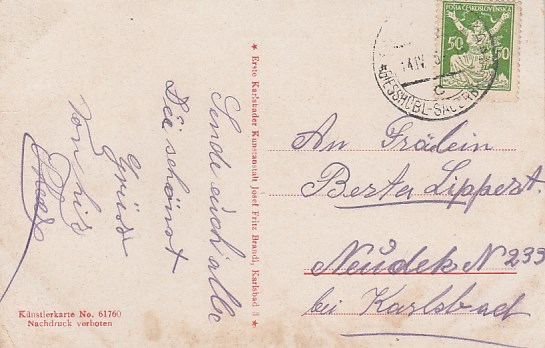 POŠTA ČESKOSLOVENSKÁ
50 50
14.IV
GIESSHÜBL-SAUERB
c
Sende euch alle
Die schönst
Grüsse
von hir
* Erste Karlsbader Kunstanstalt Josef Fritz Brandl, Karlsbad 3 *
An Fräulein
Berta Lippert.
Neudek N 239
bei Karlsbad
Künstlerkarte No. 61760
Nachdruck verboten